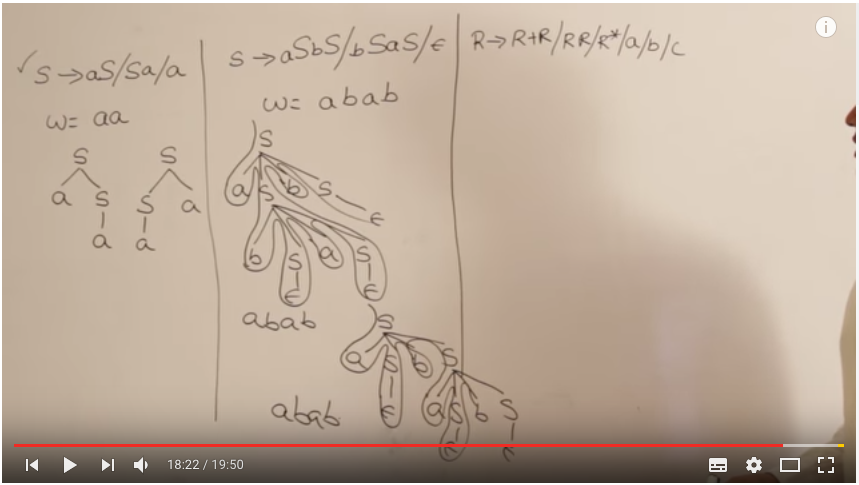 ✓ S → aS/Sa/a
w = aa
S
a S
a
S
S a
a
S → aSbS/bSaS/ϵ
w = abab
S
a S b S
ϵ
b S a S
ϵ ϵ
abab
S
a S b S
ϵ a S b S
ϵ ϵ
abab
R → R+R/RR/R*/a/b/c
18:22 / 19:50